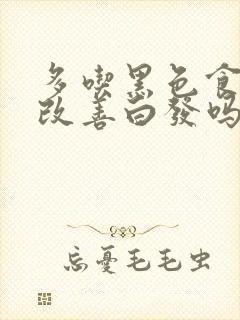 多喫黑色食
改善白發嗎
忘憂毛毛虫